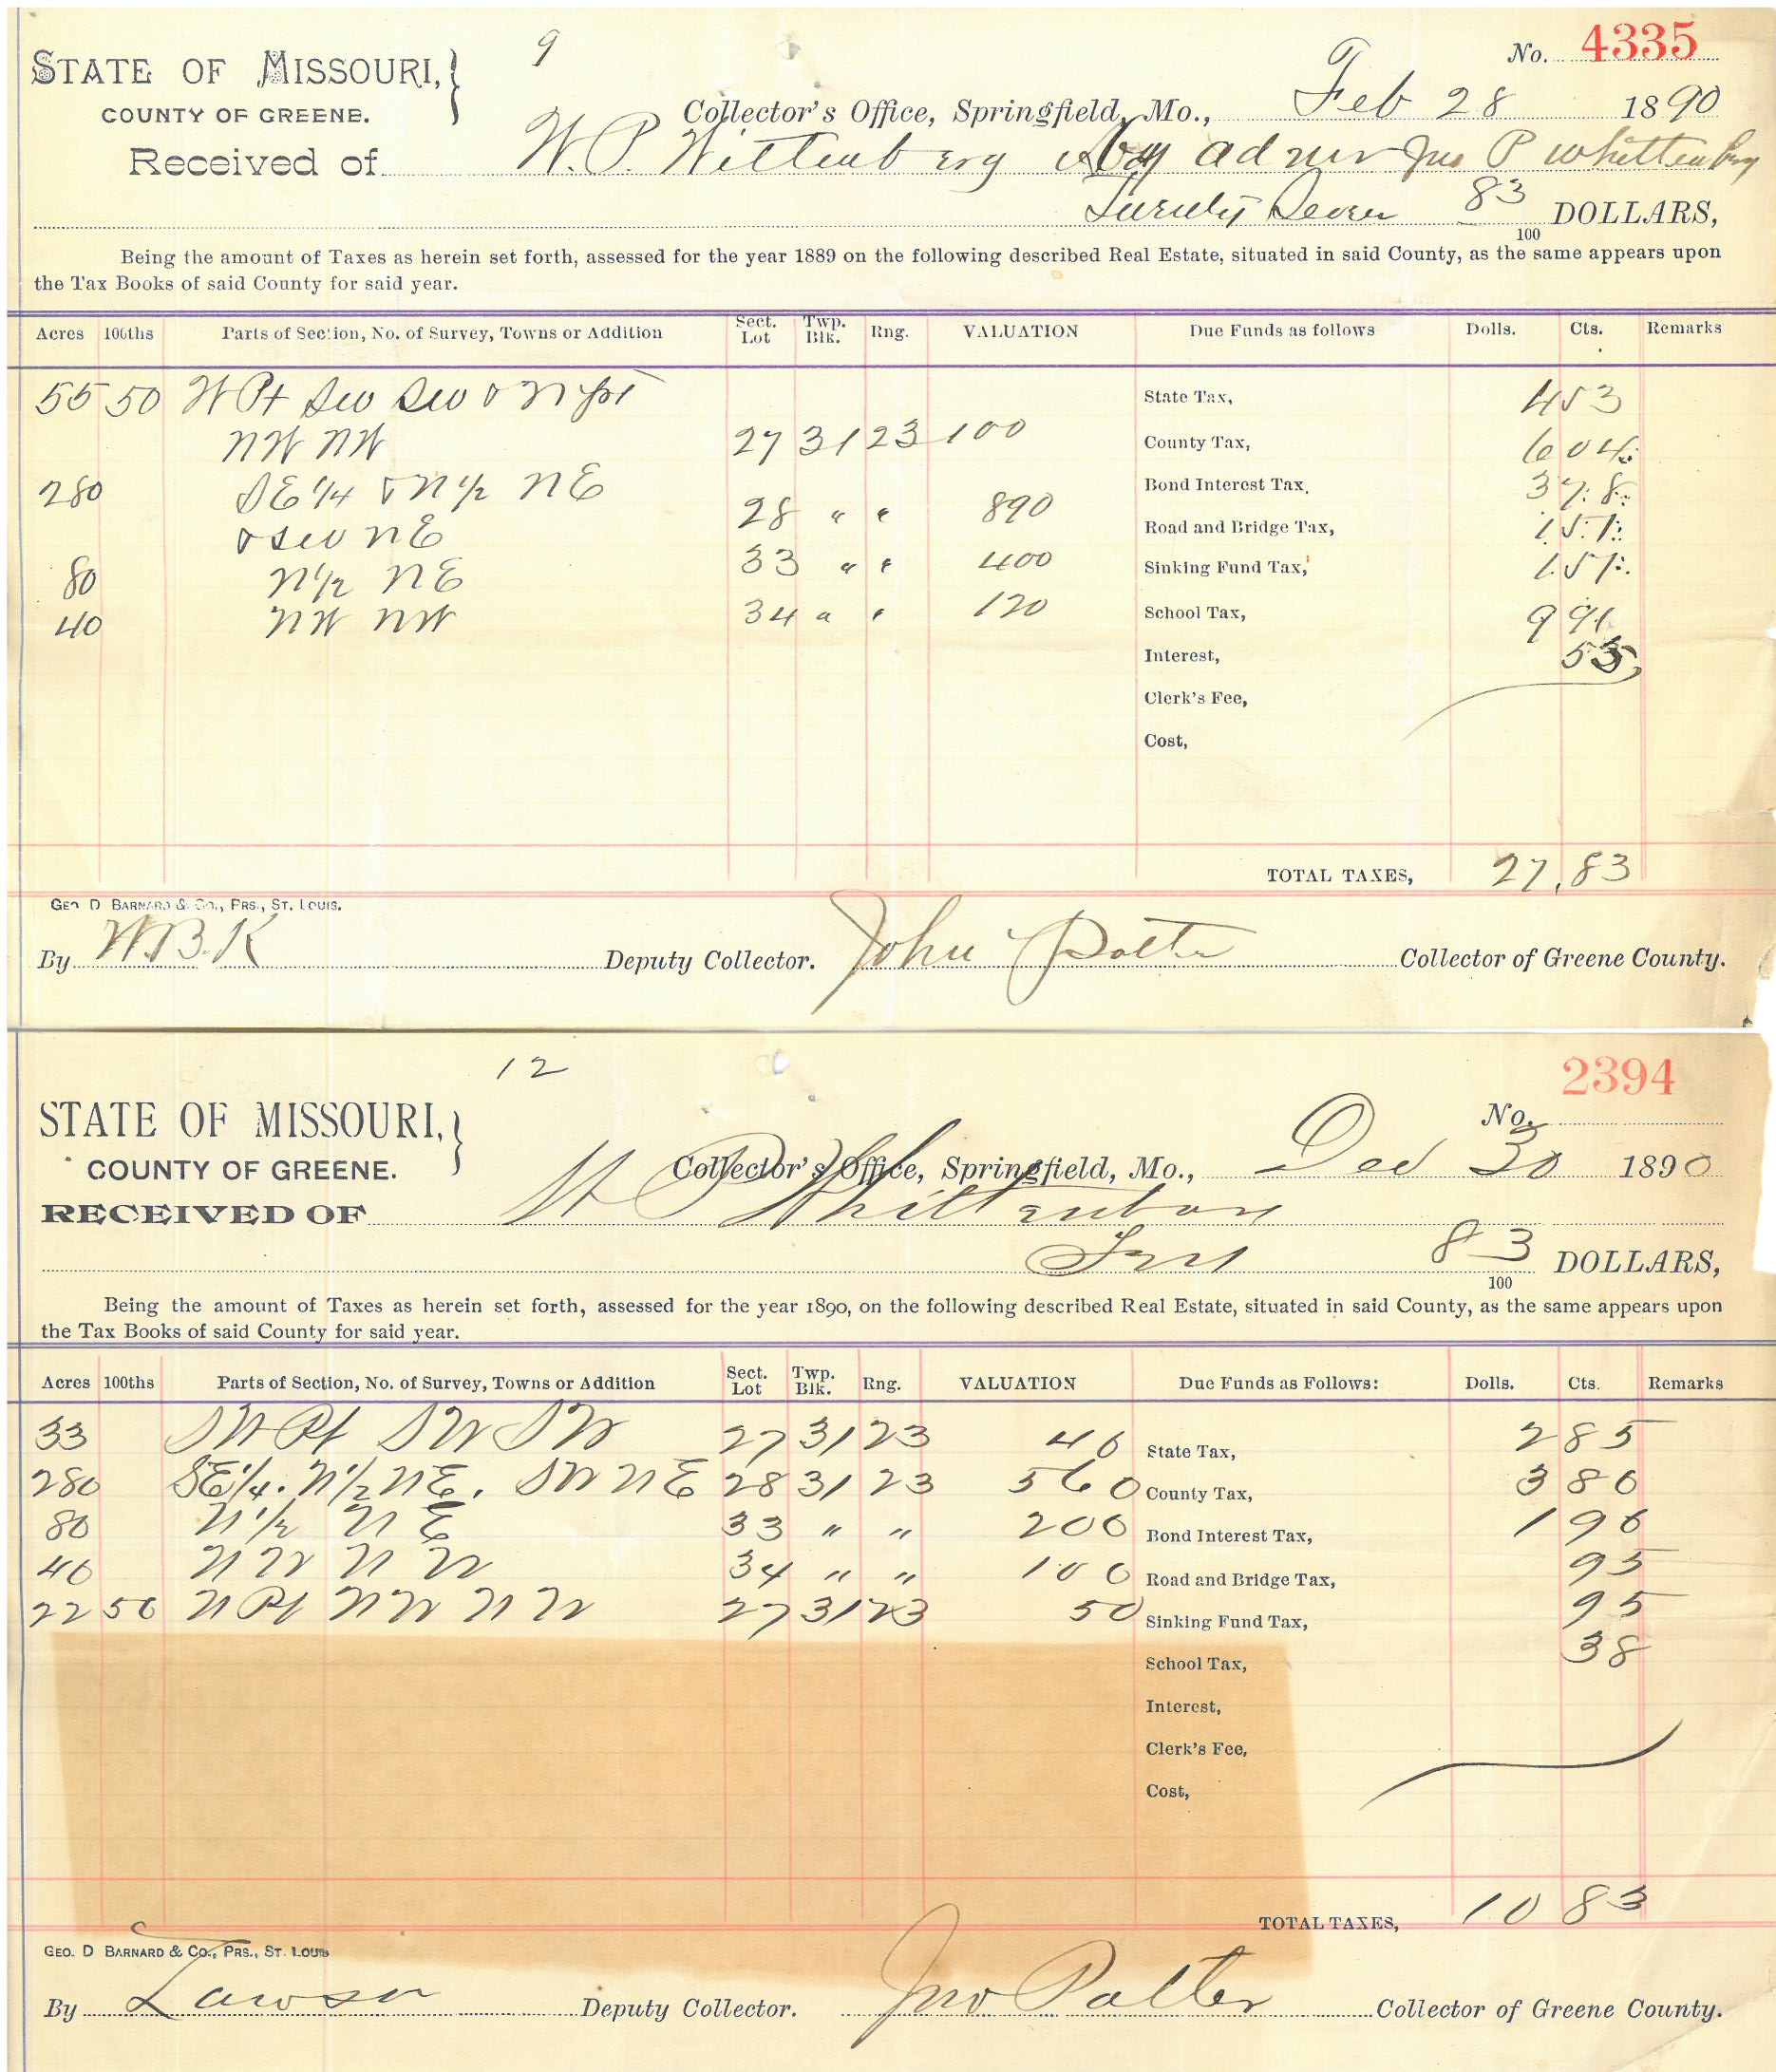 9
No. 4335
STATE OF MISSOURI,
COUNTY OF GREENE.
Collector's Office, Springfield, Mo., Feb 28 1890
Received of W. P. Wittenberg admr Jno P Whittenberg
Twenty Seven 83/100 DOLLARS,
Being the amount of Taxes as herein set forth, assessed for the year 1889 on the following described Real Estate, situated in said County, as the same appears upon
the Tax Books of said County for said year.
Acres 100ths Parts of Section, No. of Survey, Towns or Addition Sect. Lot Twp. Blk. Rng. VALUATION Due Funds as follows Dolls. Cts. Remarks
55 50 W Pt SW SW & N pt State Tax, 4 53
NW NW 27 31 23 100 County Tax, 6 04
280 SE 1/4 & N 1/2 NE Bond Interest Tax, 3 78
& SW NE 28 " " 890 Road and Bridge Tax, 1 51
80 N 1/2 NE 33 " " 400 Sinking Fund Tax, 1 51
40 NW NW 34 " " 120 School Tax, 9 91
Interest, 55
Clerk's Fee,
Cost,
TOTAL TAXES, 27,83
GEO. D BARNARD & CO., PRS., ST. LOUIS.
By W.B.K Deputy Collector. John Potter Collector of Greene County.
12
2394
No.
STATE OF MISSOURI,
COUNTY OF GREENE.
Collector's Office, Springfield, Mo., Dec 30 1890
RECEIVED OF W P Whittenberg
Ten 83/100 DOLLARS,
Being the amount of Taxes as herein set forth, assessed for the year 1890, on the following described Real Estate, situated in said County, as the same appears upon
the Tax Books of said County for said year.
Acres 100ths Parts of Section, No. of Survey, Towns or Addition Sect. Lot Twp. Blk. Rng. VALUATION Due Funds as Follows: Dolls. Cts. Remarks
33 SW Pt SW SW 27 31 23 40 State Tax, 2 85
280 SE 1/4. N 1/2 NE. SW NE 28 31 23 560 County Tax, 3 80
80 N 1/2 NE 33 " " 200 Bond Interest Tax, 1 90
40 NW NW 34 " " 100 Road and Bridge Tax, 95
22 50 N Pt NW NW 27 31 23 50 Sinking Fund Tax, 95
School Tax, 38
Interest,
Clerk's Fee,
Cost,
TOTAL TAXES, 10 83
GEO. D BARNARD & CO., PRS., ST. LOUIS
By Lawson Deputy Collector. Jno Potter Collector of Greene County.